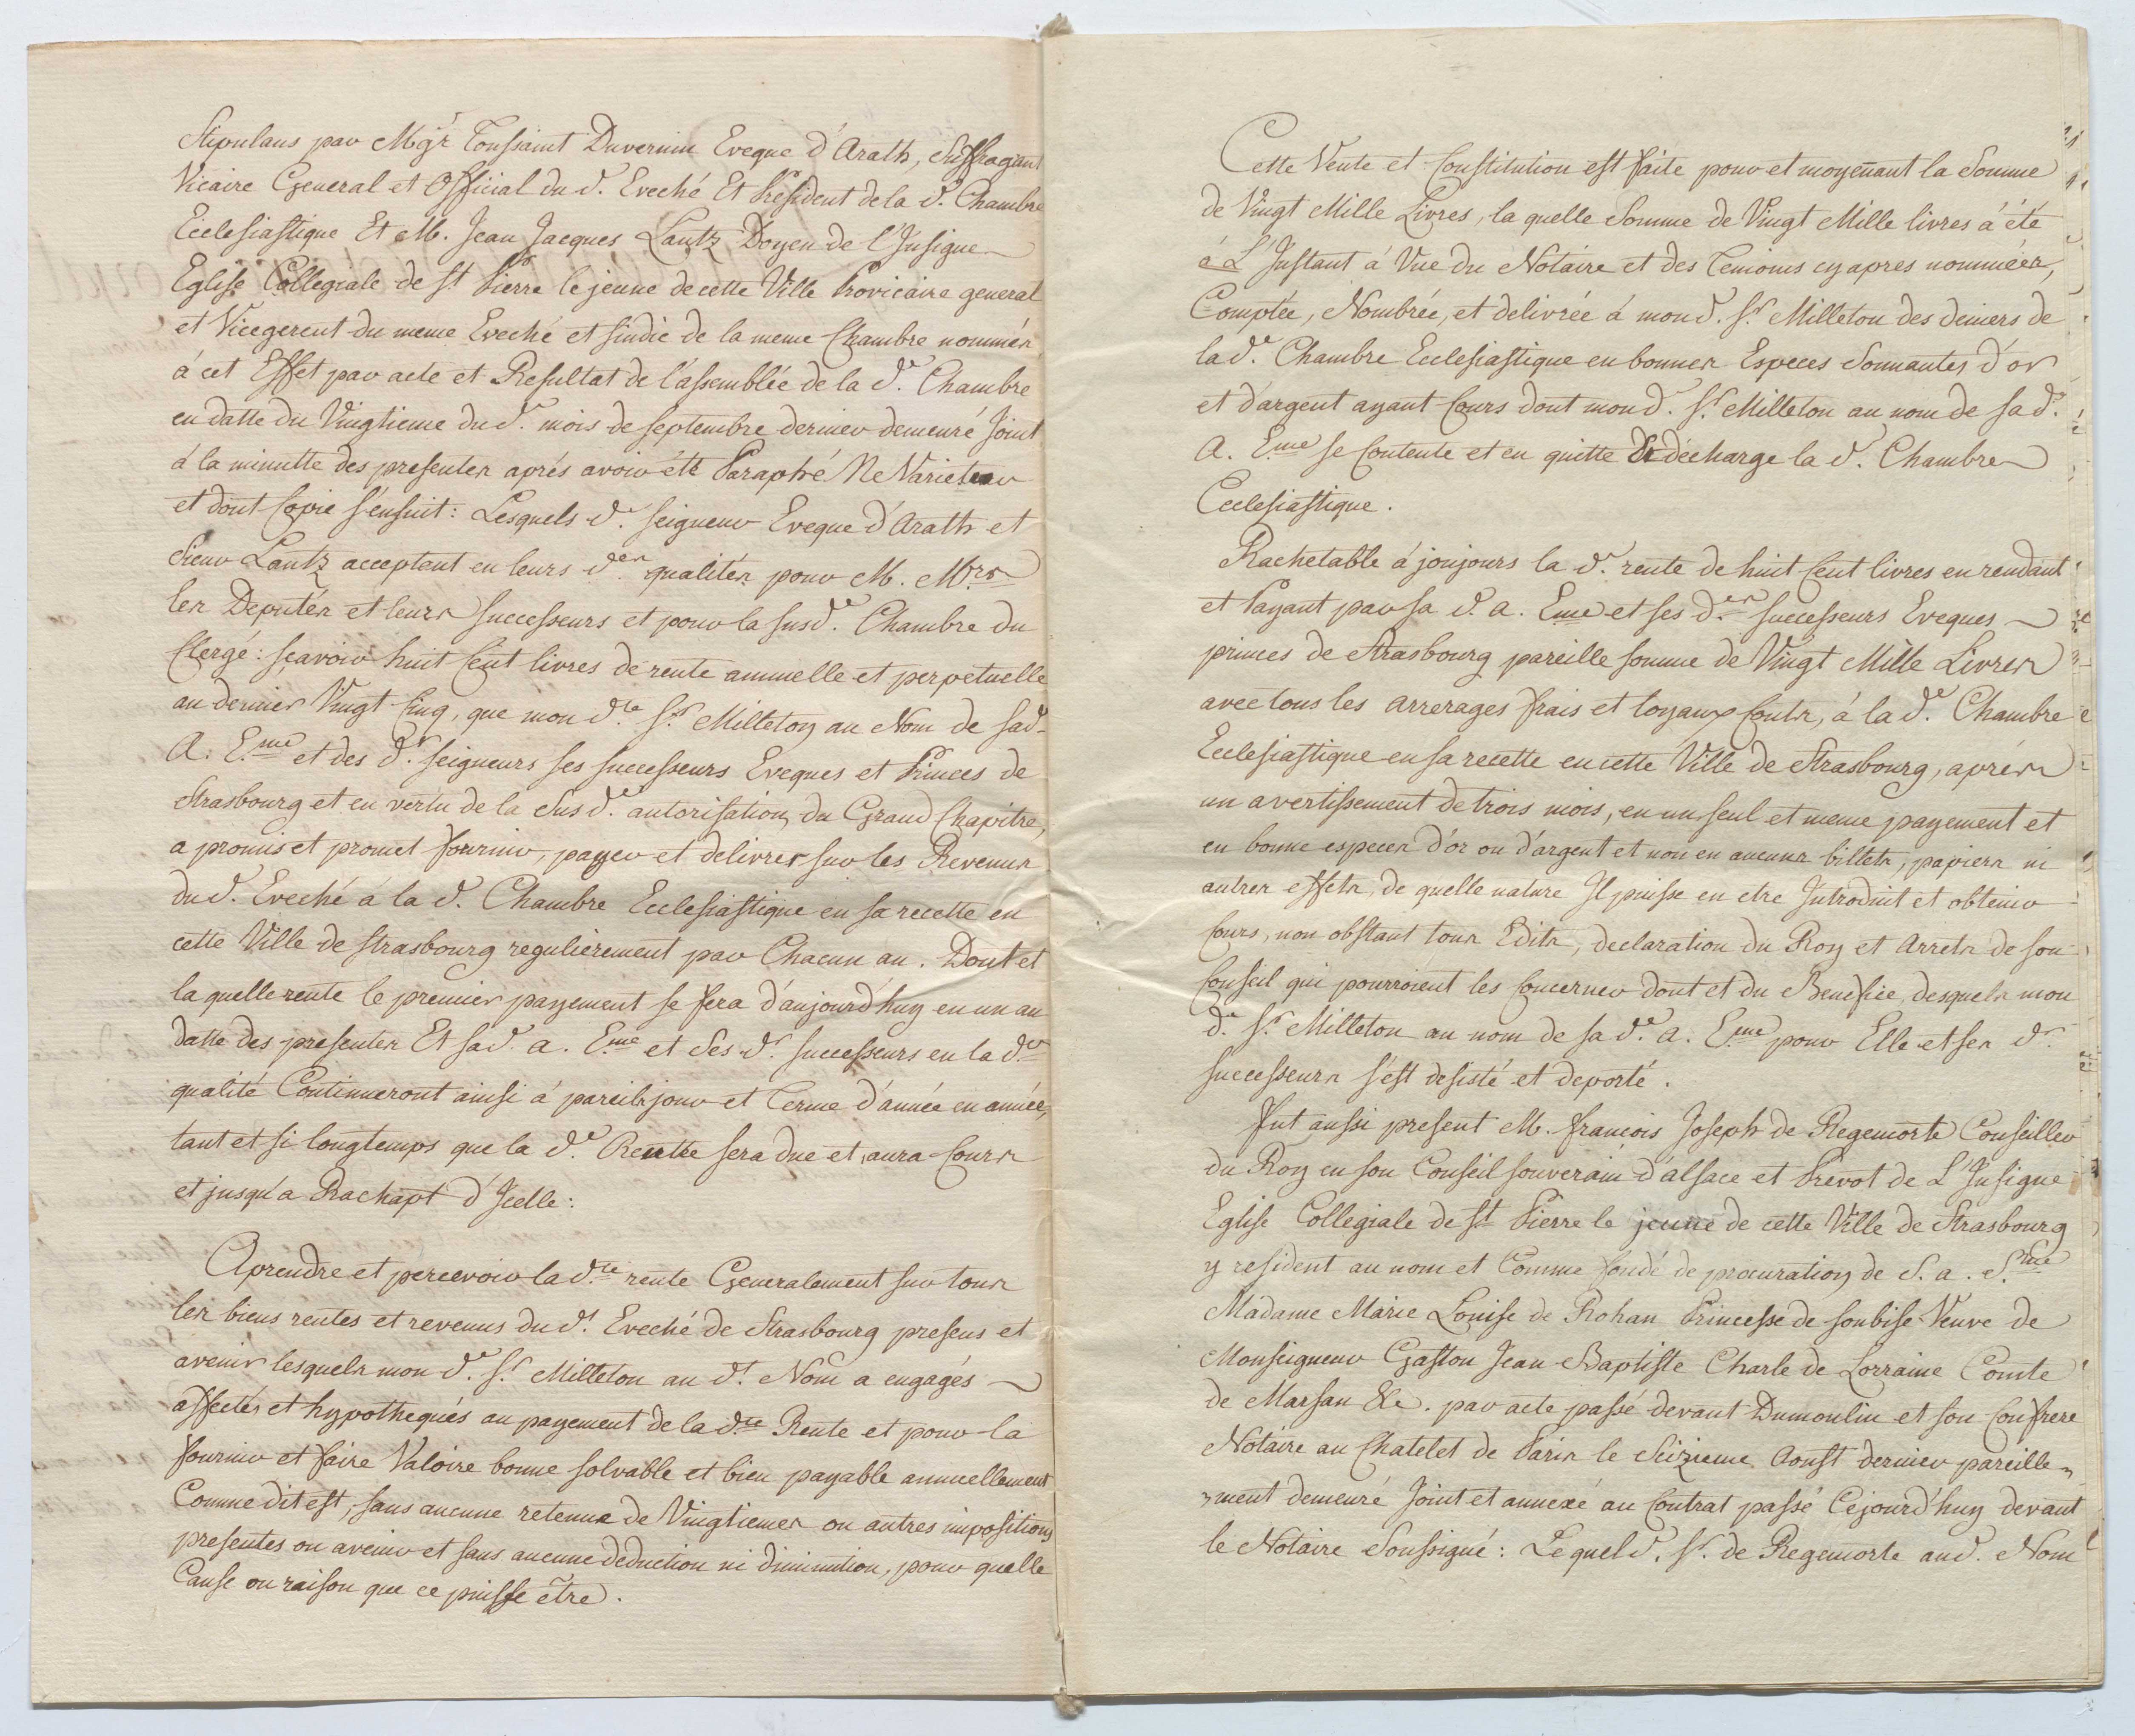 Stipulans par Mg.r Toussaint Duvernin Eveque d'Arath, Suffragant
Vicaire General et Official du d. Eveché Et President de la d.e Chambre
Ecclesiastique Et M. Jean Jacques Lantz Doyen de l'Insigne
Eglise Collegiale de St Pierre le jeune de cette Ville Provicaire general
et Vicegerent du meme Eveché et sindic de la meme Chambre nommés
à cet Effet par acte et Resultat de l'assemblée de la d.e Chambre
en datte du Vingtieme du d. mois de septembre dernier demeuré Joint
à la minutte des presentes aprés avoir été Paraphé Ne Varietur
et dont Copie s'ensuit: Lesquels d. seigneur Eveque d'Arath et
Sieur Lantz acceptent en leurs d.es qualités pour M. Mrs
les Deputés et leurs successeurs et pour la susd.e Chambre du
Clergé: sçavoir huit Cent livres de rente annuelle et perpetuelle
au denier Vingt Cinq, que mon d.t S.r Milleton au Nom de sad.
A. E.me et des d.s seigneurs ses successeurs Eveques et Princes de
Strasbourg et en vertu de la Susd.e autorisation du Grand Chapitre,
a promis et promet fournir, payer et delivrer sur les Revenus
du d. Eveché á la d. Chambre Ecclesiastique en sa recette en
cette Ville de Strasbourg regulièrement par Chacun an. Dont et
la quelle rente le premier payement se fera d'aujourd'huy en un an
datte des presentes Et sad. a. E.me et Ses d.s successeurs en la d.e
qualité Continueront ainsi á pareils jour et Terme d'année en année,
tant et si longtemps que la d.e Rentte sera due et aura Cours
et jusqu'a Rachapt d'Icelle:
Aprendre et percevoir la d.te rente Generalement sur tous
les biens rentes et revenus du d.t Eveché de Strasbourg presens et
avenir lesquels mon d. S.r Milleton au d.t Nom a engagés
affectés et hypothequés au payement de la d.te Rente et pour la
fournir et faire Valoire bonne solvable et bien payable annuellement
Comme dit est, sans aucune retenue de Vingtiemes ou autres impositions
presentes ou avenir et sans aucune deduction ni diminution, pour quelle
Cause ou raison que ce puisse être.
Cette Vente et Constitution est faite pour et moyeñant la Somme
de Vingt Mille Livres, la quelle Somme de Vingt Mille livres à été
á L'Instant á Vue du Notaire et des Temoins cy apres nommées,
Comptée, Nombrée, et delivrée á mon d. S.r Milleton des deniers de
la d.e Chambre Ecclesiastique en bonnes Especes Sonnantes d'or
et d'argent ayant Cours dont mon d. S.r Milleton au nom de sa d.
A. E.me se Contente et en quitte Et décharge la d. Chambre
Ecclesiastique.
Rachetable á joujours la d.e rente de huit Cent livres en rendant
et Payant par sa d. a. Eme et ses d.es successeurs Eveques
princes de Strasbourg pareille somme de Vingt Mille Livres
avec tous les arrerages frais et loyaux Couts, à la d.e Chambre
Ecclesiastique en sa recette en cette Ville de Strasbourg, aprés
un avertissement de trois mois, en un seul et meme payement et
en bonne especes d'or ou d'argent et non en aucuns billets, papiers ni
autres effets, de quelle nature Il puisse en etre Introduit et obtenir
Cours, non obstant tous Edits, declaration du Roy et Arrets de son
Conseil qui pourroient les Concerner dont et du Benefice, desquels mon
d. S.r Milleton au nom de sa d.e a. E.me pour Elle et ses d.s
successeurs s'est desisté et deporté.
Fut aussi present M. francois Joseph de Regemorte Conseiller
du Roy en son Conseil souverain d'alsace et Prevot de L'Insigne
Eglise Collegiale de St Pierre le jeune de cette Ville de Strasbourg
y resident au nom et Comme fondé de procuration de S. a. S.me
Madame Marie Louise de Rohan Princesse de soubise Veuve de
Monseigneur Gaston Jean Baptiste Charle de Lorraine Comte
de Marsan &c. par acte passé devant Dumoulin et son Confrere
Notaire au Chatelet de Paris le Seizieme Aoust dernier pareille
ment demeuré Joint et annexé au Contrat passé Cejourd'huy devant
le Notaire Soussigné: Lequel d. S.r de Regemorte aud. Nom